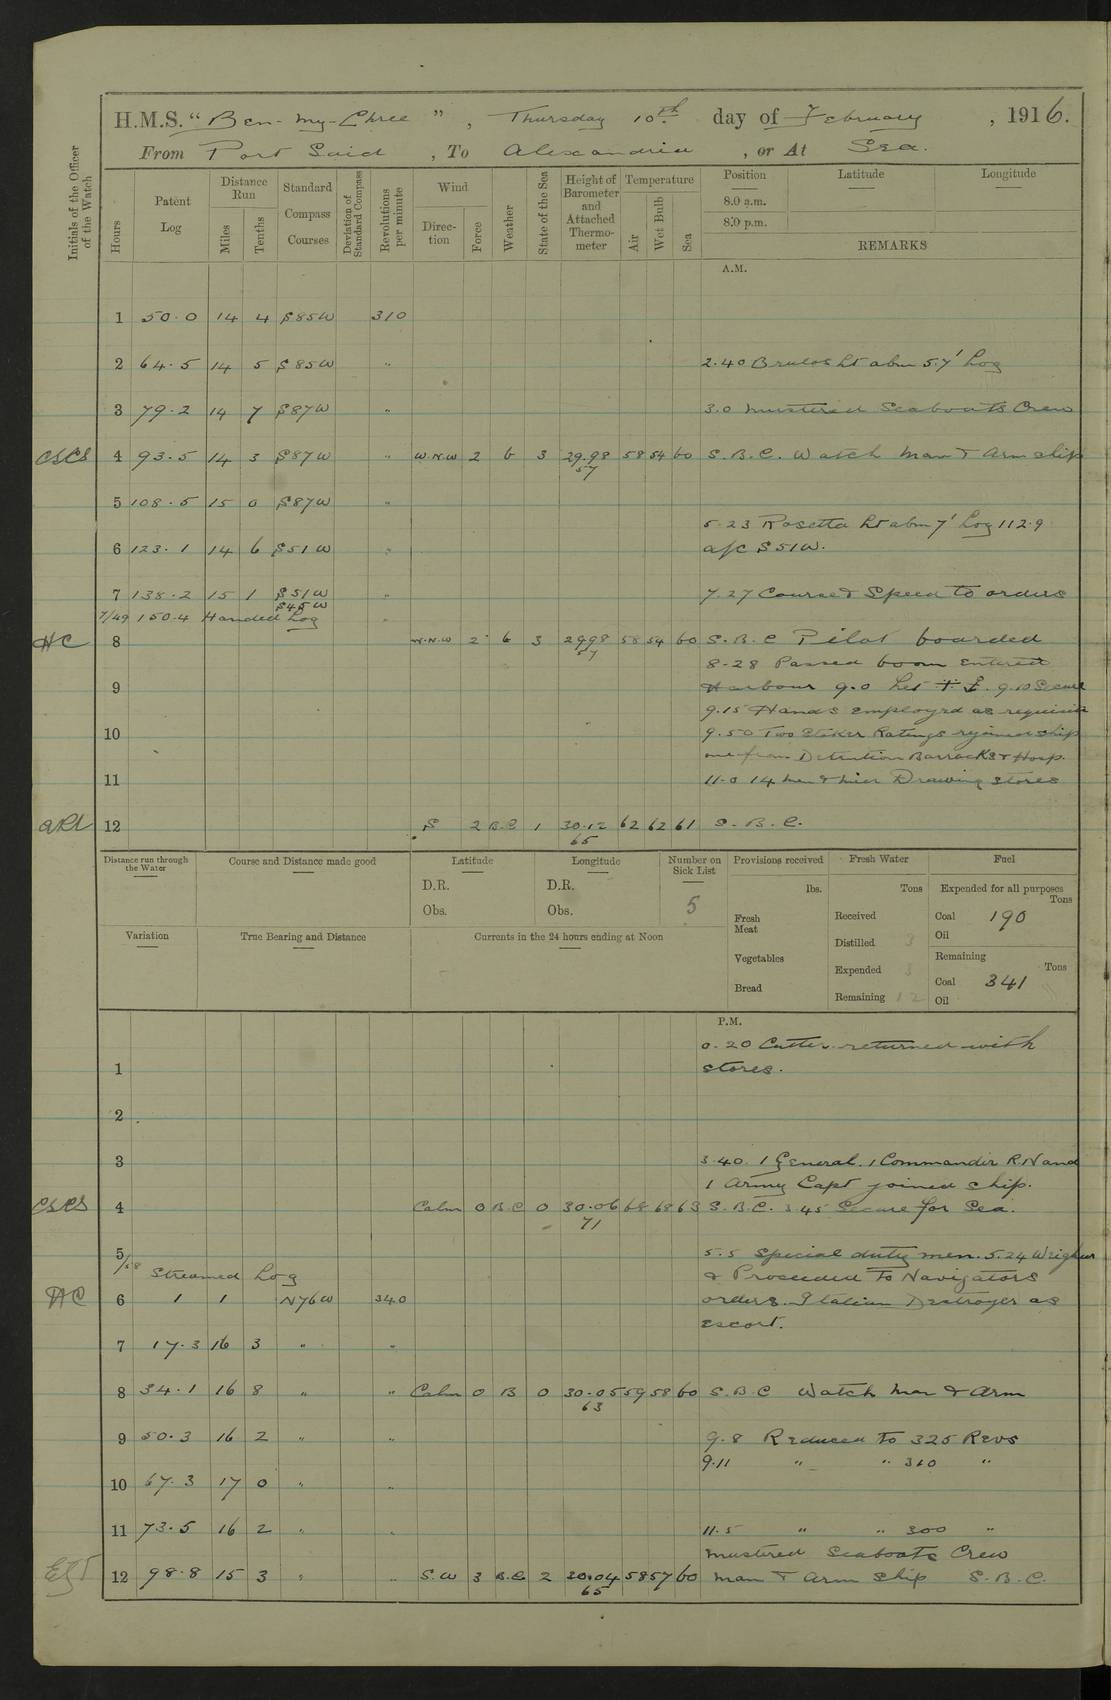 H.M.S. “ Ben-my-Chree ” , Thursday 10th day of February , 1916.
From Port Said , To Alexandria , or At Sea.
Initials of the Officer of the Watch
Hours
Patent Log
Distance Run
Miles
Tenths
Standard Compass Courses
Deviation of Standard Compass
Revolutions per minute
Wind
Direction
Force
Weather
State of the Sea
Height of Barometer and Attached Thermometer
Temperature
Air
Wet Bulb
Sea
Position
8.0 a.m.
8.0 p.m.
Latitude
Longitude
REMARKS
A.M.
1 50.0 14 4 S85W 310
2 64.5 14 5 S85W " 2.40 Brulos Lt abm 5.7' Log
3 79.2 14 7 S87W " 3.0 Mustered Seaboats Crew
CSCS 4 93.5 14 3 S87W " W.N.W 2 b 3 29.98 58 54 60 S.B.C. Watch Man & Arm ship
57
5 108.5 15 0 S87W "
5.23 Rosetta Lt abm 7' Log 112.9
6 123.1 14 6 S51W " a/c S51W.
7 138.2 15 1 S51W " 7.27 Course & Speed to orders
S45W
7/49 150.4 Handed Log "
HC 8 W.N.W 2 b 3 29.98 58 54 60 S.B.C Pilot boarded
57
8-28 Passed boom entered
9 Harbour 9.0 let 9.10 Secure
9.15 Hands employed as requisite
10 9.50 Two Stoker Ratings rejoined ship
one from Detention Barracks & Hosp.
11 11.0 14 men & Drawing stores
12 S 2 B.C 1 30.12 62 62 61 S.B.C.
65
Distance run through the Water
Course and Distance made good
Latitude
D.R.
Obs.
Longitude
D.R.
Obs.
Number on Sick List
5
Provisions received
lbs.
Fresh Meat
Vegetables
Bread
Fresh Water
Tons
Received
Distilled 3
Expended 3
Remaining 12
Fuel
Expended for all purposes
Tons
Coal 190
Oil
Remaining
Tons
Coal 341
Oil
Variation
True Bearing and Distance
Currents in the 24 hours ending at Noon
P.M.
0.20 Cutter returned with
1 stores.
2
3 3.40. 1 General. 1 Commander R.N and
1 Army Capt joined ship.
CSCS 4 Calm 0 B.C 0 30.06 68 68 63 S.B.C. 3.45 Secure for Sea.
71
5 5.5 Special duty men. 5.24 Weighed
/58 Streamed Log & Proceeded to Navigators
HC 6 1 1 N76W 340 orders. Italian Destroyer as
escort.
7 17.3 16 3 " "
8 34.1 16 8 " " Calm 0 B 0 30.05 59 58 60 S.B.C Watch Man & Arm
63
9 50.3 16 2 " " 9.8 Reduced to 325 Revs
9.11 " " 310 "
10 67.3 17 0 " "
11 73.5 16 2 " " 11.5 " " 300 "
Mustered Seaboats Crew
12 98.8 15 3 " " S.W 3 B.C. 2 30.04 58 57 60 Man & Arm Ship S.B.C.
65